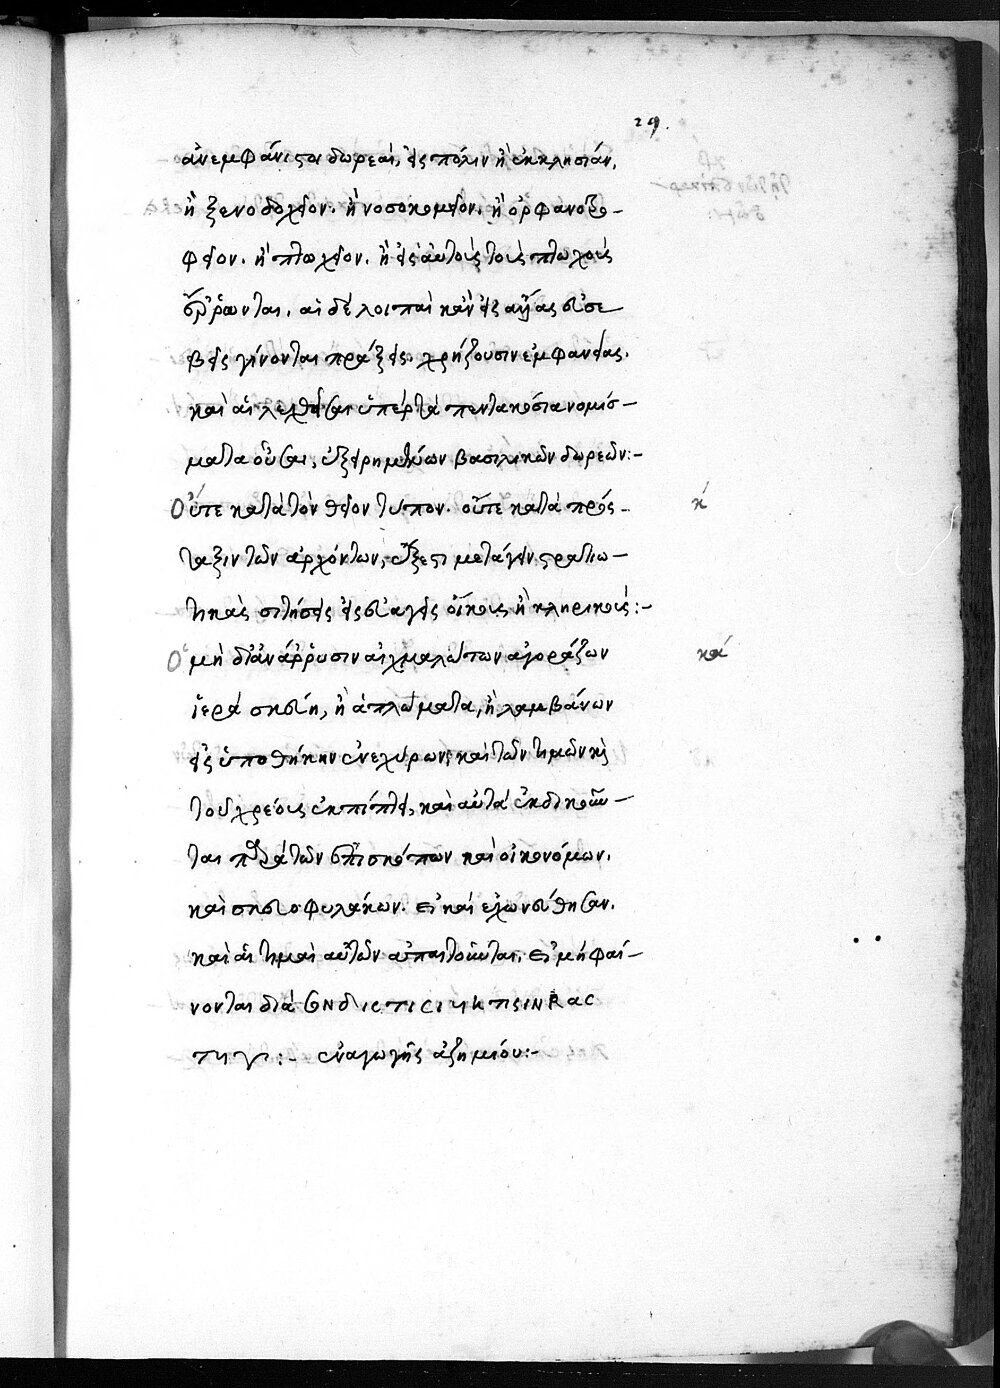 29.
ἀνεμφάνιστοι δωρεαί, εἰς πόλιν ἢ ἐκκλησίαν,
ἢ ξενοδοχεῖον. ἢ νοσοκομεῖον. ἢ ὀρφανοτρο-
φεῖον. ἢ πτωχεῖον. ἢ εἰς αὐτοὺς τοὺς πτωχοὺς
ἔρρωνται. αἱ δὲ λοιπαὶ κἂν εἰς αἰτίας εὐσε
βεῖς γίνονται πράξεις. χρήζουσιν ἐμφανείας.
καὶ αἱ λεχθεῖσαι ὑπὲρ τὰ πεντακόσια νομίσ-
ματα οὖσαι, ἐξῃρημένων βασιλικῶν δωρεῶν:-
Οὔτε κατὰ τὸν θεῖον τύπον. οὔτε κατὰ πρόσ- κ́
ταξιν τῶν ἀρχόντων, ἔξεστι μετάγειν στρατιω-
τικὰς σιτήσεις εἰς εὐαγεῖς οἴκους ἢ κληρικούς:-
Ὁ μὴ δι' ἀνάρρυσιν αἰχμαλώτων ἀγοράζων κά
ἱερὰ σκεύη, ἢ ἁπλώματα, ἢ λαμβάνων
εἰς ὑποθήκην ἐνεχύρων, καὶ τῶν τιμῶν καὶ
τοῦ χρέους ἐκπίπτει, καὶ αὐτὰ ἐκδικοῦν-
ται παρὰ τῶν ἐπισκόπων καὶ οἰκονόμων.
καὶ σκευοφυλάκων. εἰ καὶ ἐχωνεύθησαν.
καὶ αἱ τιμαὶ αὐτῶν ἀπαιτοῦνται, εἰ μὴ φαί-
νονται διὰ
ἀναγωγῆς ἀζημίου:-